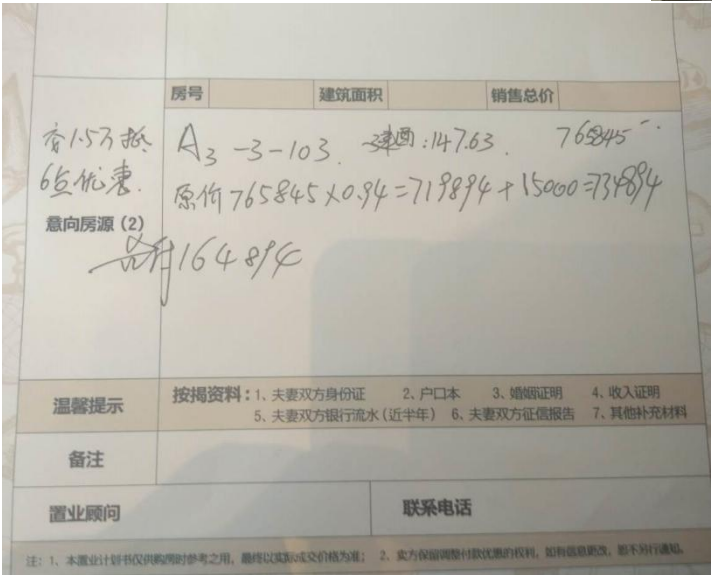 房号 建筑面积 销售总价
交1.5万抵
6点优惠.
A3-3-103. 建面:147.63. 765845
原价765845×0.94=719894+15000=734894
意向房源(2)
首付164894
温馨提示
按揭资料:1、夫妻双方身份证 2、户口本 3、婚姻证明 4、收入证明
5、夫妻双方银行流水(近半年) 6、夫妻双方征信报告 7、其他补充材料
备注
置业顾问 联系电话
注:1、本置业计划书仅供购房时参考之用,最终以实际成交价格为准; 2、卖方保留调整付款优惠的权利,如有信息更改,恕不另行通知。